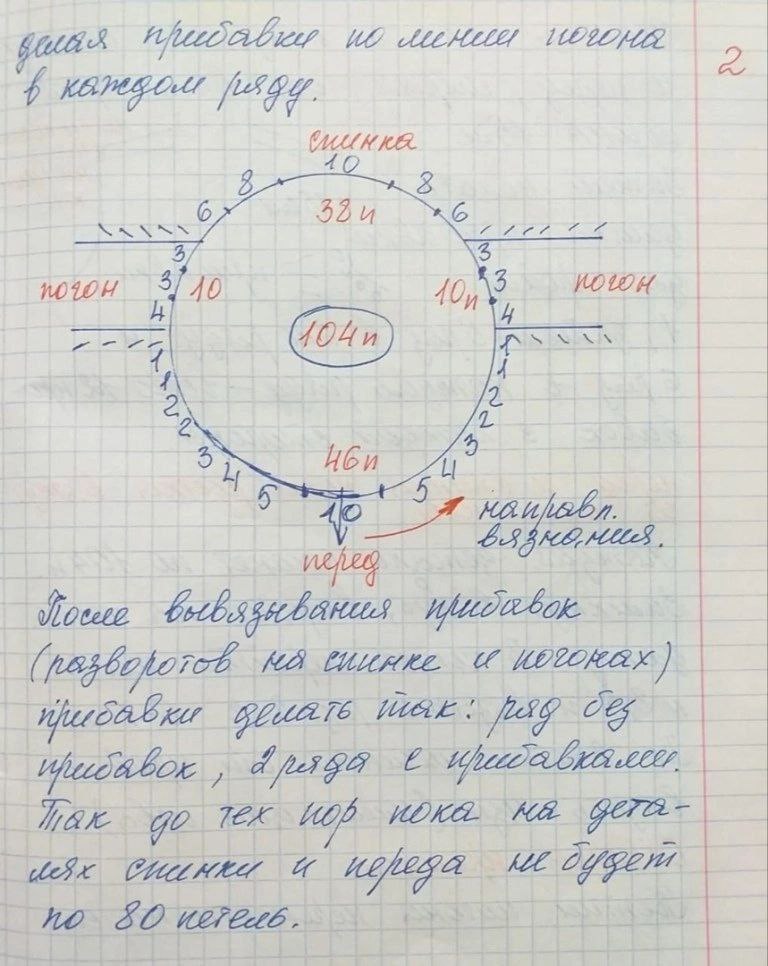 делая прибавки по линии погона
2
в каждом ряду.
спинка
10
8 8
6 38п 6
3 3
3 3
погон 10 10п погон
4 4
104п
1 1
1 1
2 2
2 2
3 3
4 46п 4
5 5
10
направл.
вязно,ния.
перед
После вывязывания прибавок
(разворотов на спинке и погонах)
прибавки делать так: ряд без
прибавок, 2 ряда с прибавками.
Так до тех пор пока на дета-
лях спинки и переда не будет
по 80 петель.